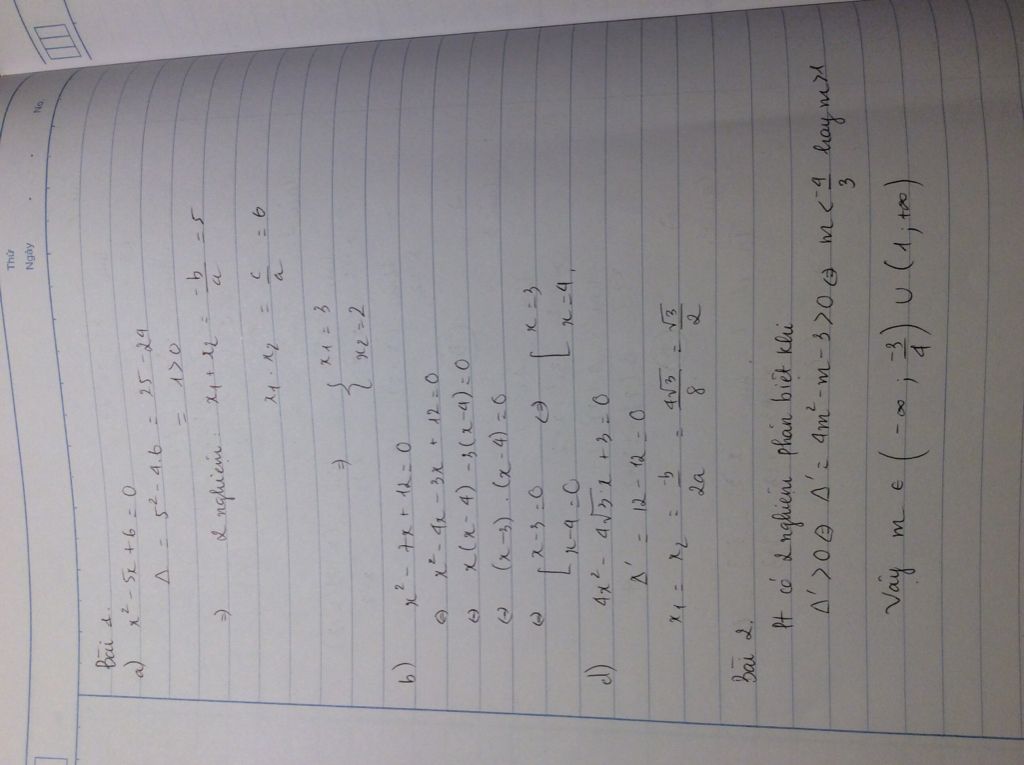 Thứ
Ngày
No.
Bài 1.
a) x² - 5x + 6 = 0
Δ = 5² - 4.6 = 25 - 24
= 1 > 0
⇒ 2 nghiệm. x1 + x2 = -b/a = 5
x1 . x2 = c/a = 6
⇒ { x1 = 3
x2 = 2
b) x² - 7x + 12 = 0
⇔ x² - 4x - 3x + 12 = 0
⇔ x(x - 4) - 3(x - 4) = 0
⇔ (x - 3) . (x - 4) = 0
⇔ [ x - 3 = 0 ⇔ [ x = 3
x - 4 = 0 x = 4.
c) 4x² - 4√3 x + 3 = 0
Δ' = 12 - 12 = 0
x1 = x2 = -b/2a = 4√3/8 = √3/2
Bài 2.
Pt có 2 nghiệm phân biệt khi
Δ' > 0 ⇔ Δ' = 4m² - m - 3 > 0 ⇔ m < -4/3 hay m > 1
Vậy m ∈ (-∞ ; -3/4) ∪ (1 ; +∞)